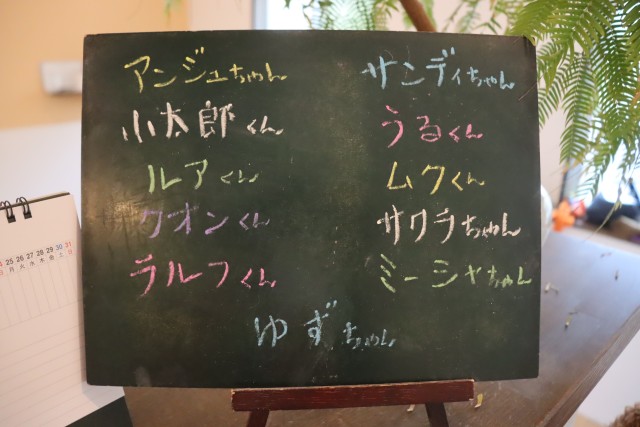 アンジュちゃん
小太郎くん
ルアくん
クオンくん
ラルフくん
サンディちゃん
うるくん
ムクくん
サクラちゃん
ミーシャちゃん
ゆずちゃん
25 26 27 28 29 30 31
月 火 水 木 金 土 日